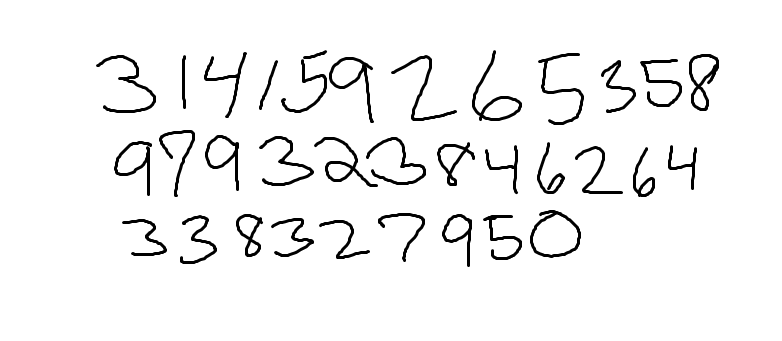 314159265358
979323846264
338327950